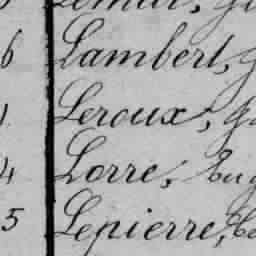 6 Lambert,
Leroux,
4 Lorre, Eug
5 Lepierre,